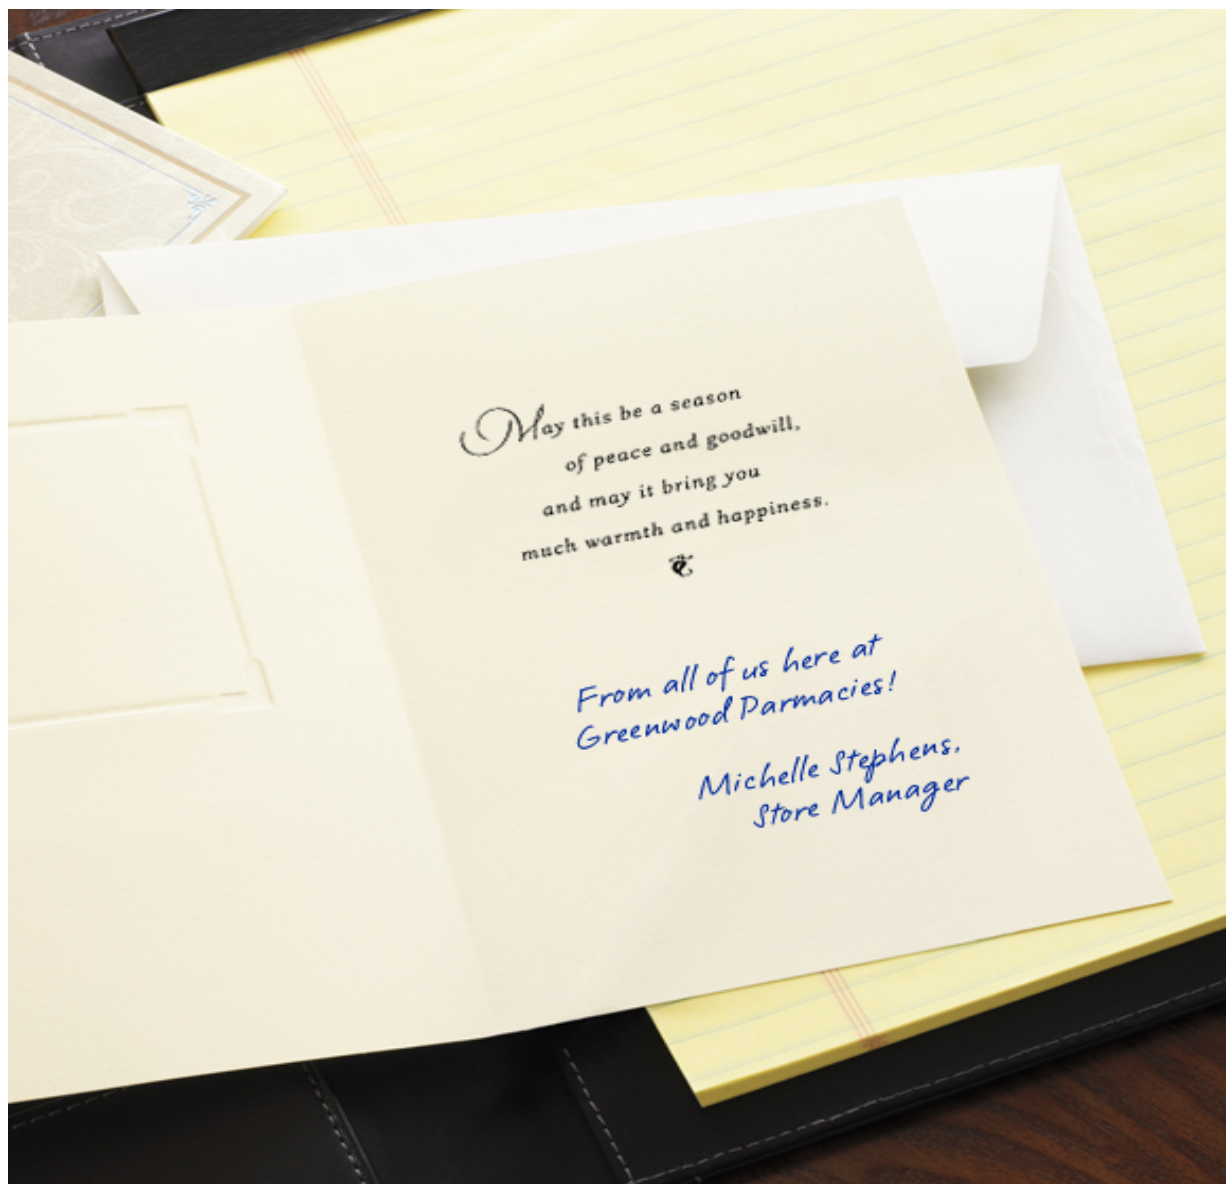 May this be a season
of peace and goodwill,
and may it bring you
much warmth and happiness.
From all of us here at
Greenwood Darmacies!
Michelle Stephens,
Store Manager